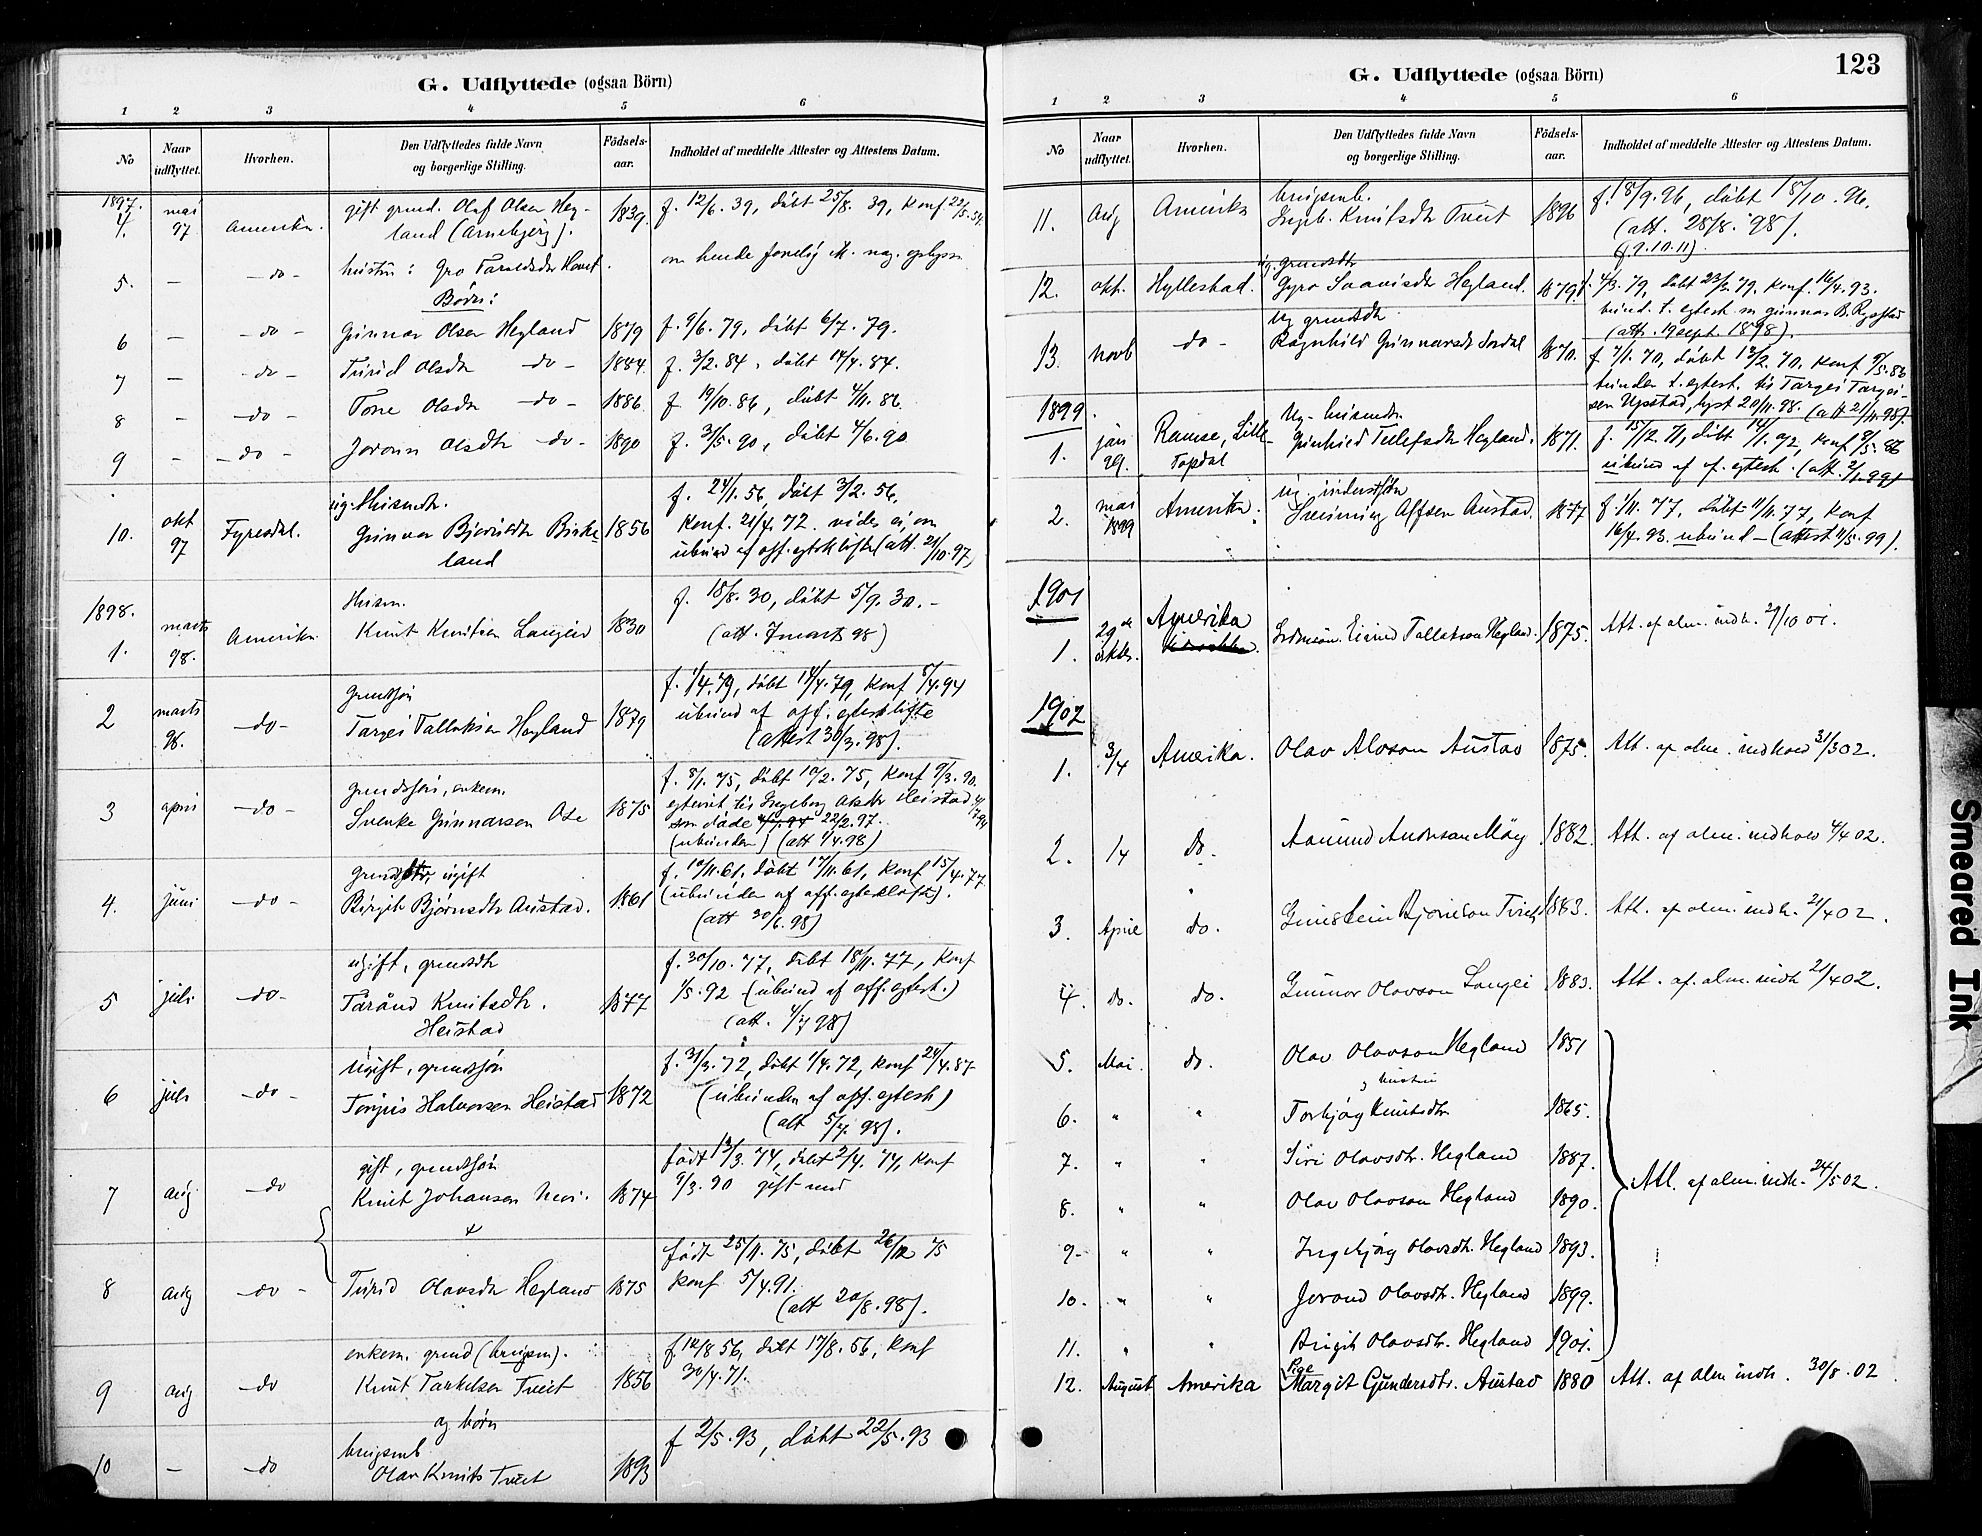 G. Udflyttede (ogsaa Börn)
1 2 3 4 5 6
No Naar udflyttet. Hvorhen. Den Udflyttedes fulde Navn og borgerlige Stilling. Födsels-aar. Indholdet af meddelte Attester og Attestens Datum.
1897.
4. mai 97 Amerika. gift grund. Olaf Olsen Heg-
land (Arnebjerg). 1839. f. 12/6. 39, döbt 25/8. 39, Konf. 
5. — — do — hustru: Gro
Börn:
6 — — do — Gunnar Olsen Hegland 1879 f. 9/6. 79, döbt 6/7. 79.
7 — — do — Turid Olsdtr — do — 1884. f. 3/2. 84, döbt 14/4. 84.
8 — — do — Tone Olsdtr — do — 1886. f 19/10. 86, döbt 4/11. 86.
9 — — do — Joronn Olsdtr — do — 1890 f. 31/5. 90, döbt 4/6. 90
10. okt 97 Fyresdal. ug. Huusmdtr.
Gunvor Bjørnsdtr Birke-
land 1856 f. 24/1. 56, döbt 3/2. 56,
Konf. 21/4. 72. vides ei, om
ubund af off. egteskløfte (att. 21/10. 97)
1898.
1. marts 98. Amerika Husm.
Knut Knutsen Langeid 1830 f. 15/8. 30, döbt 5/9. 30. —
(att. 7 marts 98)
2 marts 98. — do — Grundsøn
Targei Talleksen Hegland 1879 f. 1/4. 79, döbt 14/4. 79, Konf 8/4. 94
ubund af off. egteskløfte
(attest 30/3. 98).
3 april — do — grundsøn, enkem.
Svenke Gunnarsen Ose 1875 f. 8/1. 75, döbt 10/2. 75, Konf 9/3. 90.
egteviet til Ingeborg Olsdtr Heistad
som döde 22/2. 97.
(ubunden) (att 1/4. 98)
4. juni — do — ugift
Birgit Bjørnsdtr Austad. 1861 f. 10/11. 61, döbt 17/11. 61, Konf 15/4. 77
(ubunden af off. egteskløfte).
(att 30/6. 98)
5 juli — do — ugift, grundsdtr
Tarånd Knutsdtr.
Heistad 1877 f. 30/10. 77, döbt 18/11. 77, Konf
1/5. 92 (ubund af off. egtesk.)
(att. 1/7 98)
6 juli — do — Ugift, grundsøn
Torjus Halvorsen Heistad 1872 f. 31/3. 72, döbt 1/4. 72, Konf 24/4. 87
(ubunden af off. egtesk)
(att 5/7. 98).
7 aug — do gift, grundsøn
Knut Johansen 1874 född 13/3. 74, döbt 2/4. 74, Konf
9/3. 90 gift med
8 aug — do — Turid Olavsdtr Hegland 1875 född 25/11. 75, döbt 26/12 75
Konf 5/4. 91.
(att 20/8. 98).
9 aug — do enkem. grund (brugsm).
Knut Tarkelsen Tveit 1856 f 12/8 56, döbt 17/8. 56, Konf
30/4. 71.
og börn
10 — — do brugsmb
Olav Knuts Tveit 1893 f 2/5. 93, döbt 22/5. 93
G. Udflyttede (ogsaa Börn) 123
1 2 3 4 5 6
No Naar udflyttet. Hvorhen. Den Udflyttedes fulde Navn og borgerlige Stilling. Födsels-aar. Indholdet af meddelte Attester og Attestens Datum.
11. Aug Amerika brugsmb.
Ingeb. Knutsdtr Tveit 1896 f. 18/9. 96, döbt 15/10. 96.
(att. 28/8. 98).
(j 9. 10. 11).
12. okt. Hyllestad. ug. grundsdtr
Gyro Hegland. 1879 f. 4/3. 79, döbt 23/3. 79. Konf. 16/4. 93.
bund. t. egtesk m gunnar B. Rysstad
(att. 19 sept. 1898).
13. Novb — do — Ug grundsdtr
Ragnhild Gunnarsdtr 1870. f 7/1. 70, döbt 13/2. 70, Konf 9/5. 86
bunden t. egtesk. til Targei Targei-
sen Upstad, lyst 20/11. 98. (att 21/11. 98).
1899.
1. jan 29. Ramse, Lille-
Topdal Ug. husmdtr
Gunhild Tellefsdtr Hegland. 1871. f. 15/12. 71, döbt 14/1. 72, Konf 9/5. 86
ubund af of. egtesk. (att. 2/1. 99)
2. mai 1899 Amerika. ug inderstsøn
Austad. 1877 f 1/11. 77, döbt 11/11. 77, Konf
16/4. 93. ubund — (attest 11/5. 99).
1901
1. 29de oktbr. Amerika Eivind Tallakson Hegland. 1875. Att. af alm. indh. 29/10 01.
1902
1. 3/4 Amerika. Olav Alvson Austad 1875. Att. af alm. indhold 31/3 02.
2. 14 do. Aamund Andersson 1882. Att. af alm. indhold 4/4 02.
3. April do. Gunstein Bjørnson Tveit 1883. Att. af alm. indh. 21/4 02.
4. do. do. Gunnar Olavson Langei 1883. Att. af. alm. indh 21/4 02.
5. Mai. do. Olav Olavson Hegland 1851
og hustru
6. " " Torbjørg Knutsdtr 1865.
7. " " Siri Olavsdtr. Hegland 1887. Att. af alm. indh. 24/5 02.
8. " " Olav Olavson Hegland 1890.
9. " " Ingebjørg Olavsdtr. Hegland 1893.
10. " " Jorand Olavsdtr. Hegland 1899.
11. " " Birgit Olavsdtr. Hegland 1901.
12. August Amerika Pige
Margit Gundersdtr. Austad 1880 Att. af alm indh. 30/8 02
Smeared Ink